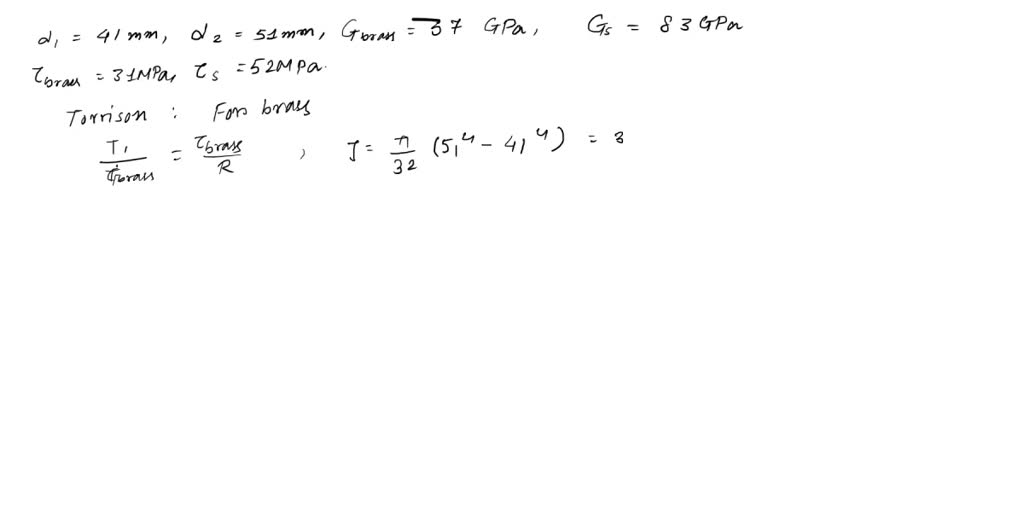 d₁ = 41 mm, d₂ = 51mm, Gbrass = 37 GPa, Gs = 83 GPa
τbrass = 31MPa, τs = 52MPa.
Torrison : For brass
T₁/Jbrass = τbrass/R , J = π/32 (51⁴ - 41⁴) = 3